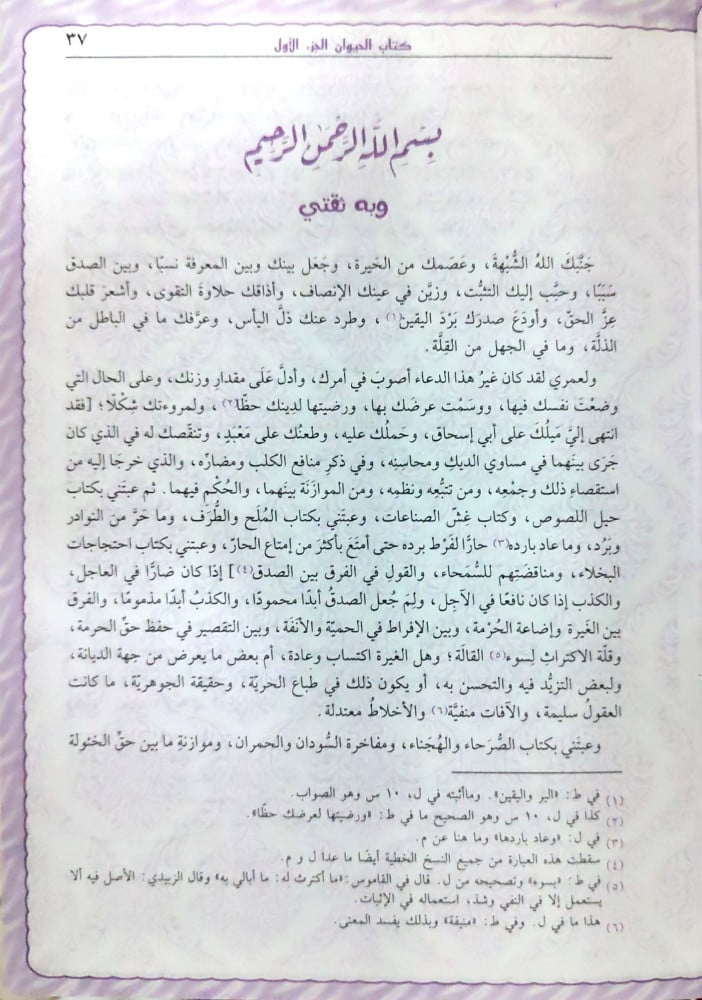 كتاب الحيوان الجزء الأول
٣٧
بِسْمِ اللَّهِ الرَّحْمَنِ الرَّحِيمِ
وبه ثقتي
جَنَّبَكَ اللهُ الشُّبْهةَ، وعَصَمك من الحَيرة، وجَعَل بينك وبين المعرفة نسبًا، وبين الصدق
سَبَبًا، وحبَّب إليك التثبُّت، وزيَّن في عينك الإنصاف، وأذاقك حلاوةَ التقوى، وأشعرَ قلبك
عِزَّ الحقّ، وأودَعَ صدرَك بَرْدَ اليقين(١)، وطرد عنك ذلَّ اليأس، وعرَّفك ما في الباطل من
الذلَّة، وما في الجهل من القِلَّة.
ولعمري لقد كان غيرُ هذا الدعاء أصوبَ في أمرك، وأدلَّ عَلَى مقدارِ وزنك، وعلى الحال التي
وضعْتَ نفسك فيها، ووسَمْت عرضَك بها، ورضيتها لدِينك حظًّا(٢)، ولمروءتك شِكْلًا؛ [فقد
انتهى إليَّ مَيلُكَ على أبي إسحاق، وحَملُك عليه، وطعنُك على مَعْبَدٍ، وتنقّصك له في الذي كان
جَرَى بينَهما في مساوي الديكِ ومحاسِنِه، وفي ذكرِ منافع الكلب ومضارِّه، والذي خرجَا إليه من
استقصاءِ ذلك وجمْعِه، ومن تتبُّعِه ونظمِه، ومن الموازَنَة بينَهما، والحُكْمِ فيهما. ثم عبتَني بكتاب
حيل اللصوص، وكتاب غِشّ الصناعات، وعبتَني بكتاب المُلَح والطُّرَف، وما حَرَّ من النوادر
وبَرُد، وما عاد بارده(٣) حارًّا لفَرْط برده حتى أمتَعَ بأكثَرَ من إمتاع الحارّ، وعبتني بكتاب احتجاجات
البخلاء، ومناقضَتِهم للسُّمَحاء، والقولِ في الفرق بين الصدق(٤)] إذا كان ضارًّا في العاجل،
والكذب إذا كان نافعًا في الآجِل، ولِمَ جُعل الصدقُ أبدًا محمودًا، والكذبُ أبدًا مذمومًا، والفرق
بين الغَيرة وإضاعة الحُرْمة، وبين الإفراط في الحميّة والأنَفَة، وبين التقصير في حفظ حقِّ الحرمة،
وقلّة الاكتراثِ لِسوء(٥) القالَة؛ وهل الغيرة اكتساب وعادة، أم بعض ما يعرض من جهة الديانة،
ولبعض التزيُّد فيه والتحسن به، أو يكون ذلك في طباع الحريّة، وحقيقة الجوهريّة، ما كانت
العقولُ سليمة، والآفات منفيَّة(٦) والأخلاطُ معتدلة.
وعبتَني بكتاب الصُّرَحاء والهُجَناء، ومفاخرة السُّودان والحمران، وموازنةِ ما بين حقِّ الخئولة
(١) في ط: «البر واليقين». وماأثبته في ل، ١٠ س وهو الصواب.
(٢) كذا في ل، ١٠ س وهو الصحيح ما في ط: «ورضيتها لعرضك حظًا».
(٣) في ل: «وعاد باردها» وما هنا عن م.
(٤) سقطت هذه العبارة من جميع النسخ الخطية أيضًا ما عدا ل و م.
(٥) في ط: «بسوء» وتصحيحه من ل. قال في القاموس: «ما أكترث له: ما أبالي به» وقال الزبيدي: الأصل فيه ألا
يستعمل إلا في النفي وشذ، استعماله في الإثبات.
(٦) هذا ما في ل. وفي ط: «منيفة» وبذلك يفسد المعنى.